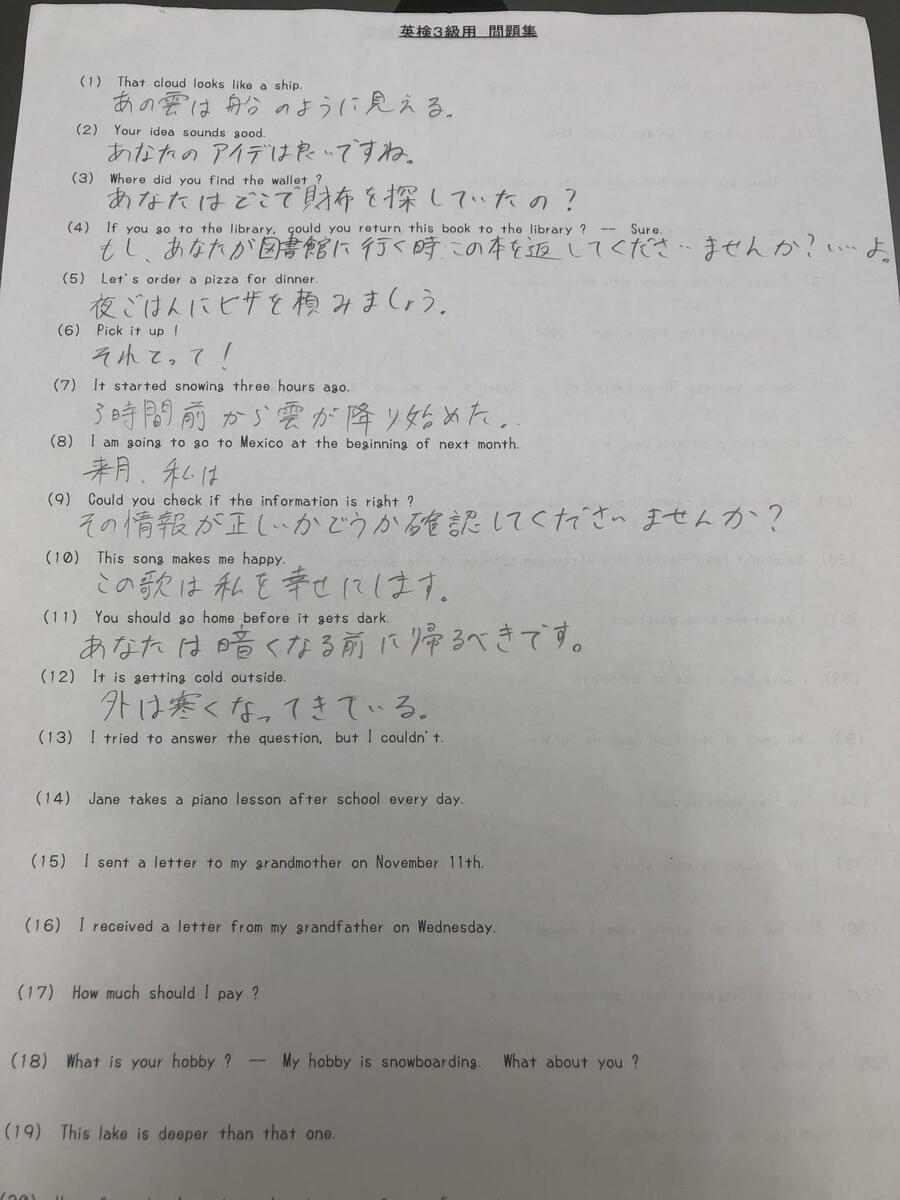 英検3級用 問題集
(1) That cloud looks like a ship.
あの雲は船のように見える。
(2) Your idea sounds good.
あなたのアイデは良いですね。
(3) Where did you find the wallet ?
あなたはどこで財布を探していたの?
(4) If you go to the library, could you return this book to the library ? -- Sure.
もし、あなたが図書館に行く時、この本を返してくださいませんか? いいよ。
(5) Let's order a pizza for dinner.
夜ごはんにピザを頼みましょう。
(6) Pick it up !
それとって!
(7) It started snowing three hours ago.
3時間前から雲が降り始めた。
(8) I am going to go to Mexico at the beginning of next month.
来月、私は
(9) Could you check if the information is right ?
その情報が正しいかどうか確認してくださいませんか?
(10) This song makes me happy.
この歌は私を幸せにします。
(11) You should go home before it gets dark.
あなたは暗くなる前に帰るべきです。
(12) It is getting cold outside.
外は寒くなってきている。
(13) I tried to answer the question, but I couldn't.
(14) Jane takes a piano lesson after school every day.
(15) I sent a letter to my grandmother on November 11th.
(16) I received a letter from my grandfather on Wednesday.
(17) How much should I pay ?
(18) What is your hobby ? -- My hobby is snowboarding. What about you ?
(19) This lake is deeper than that one.